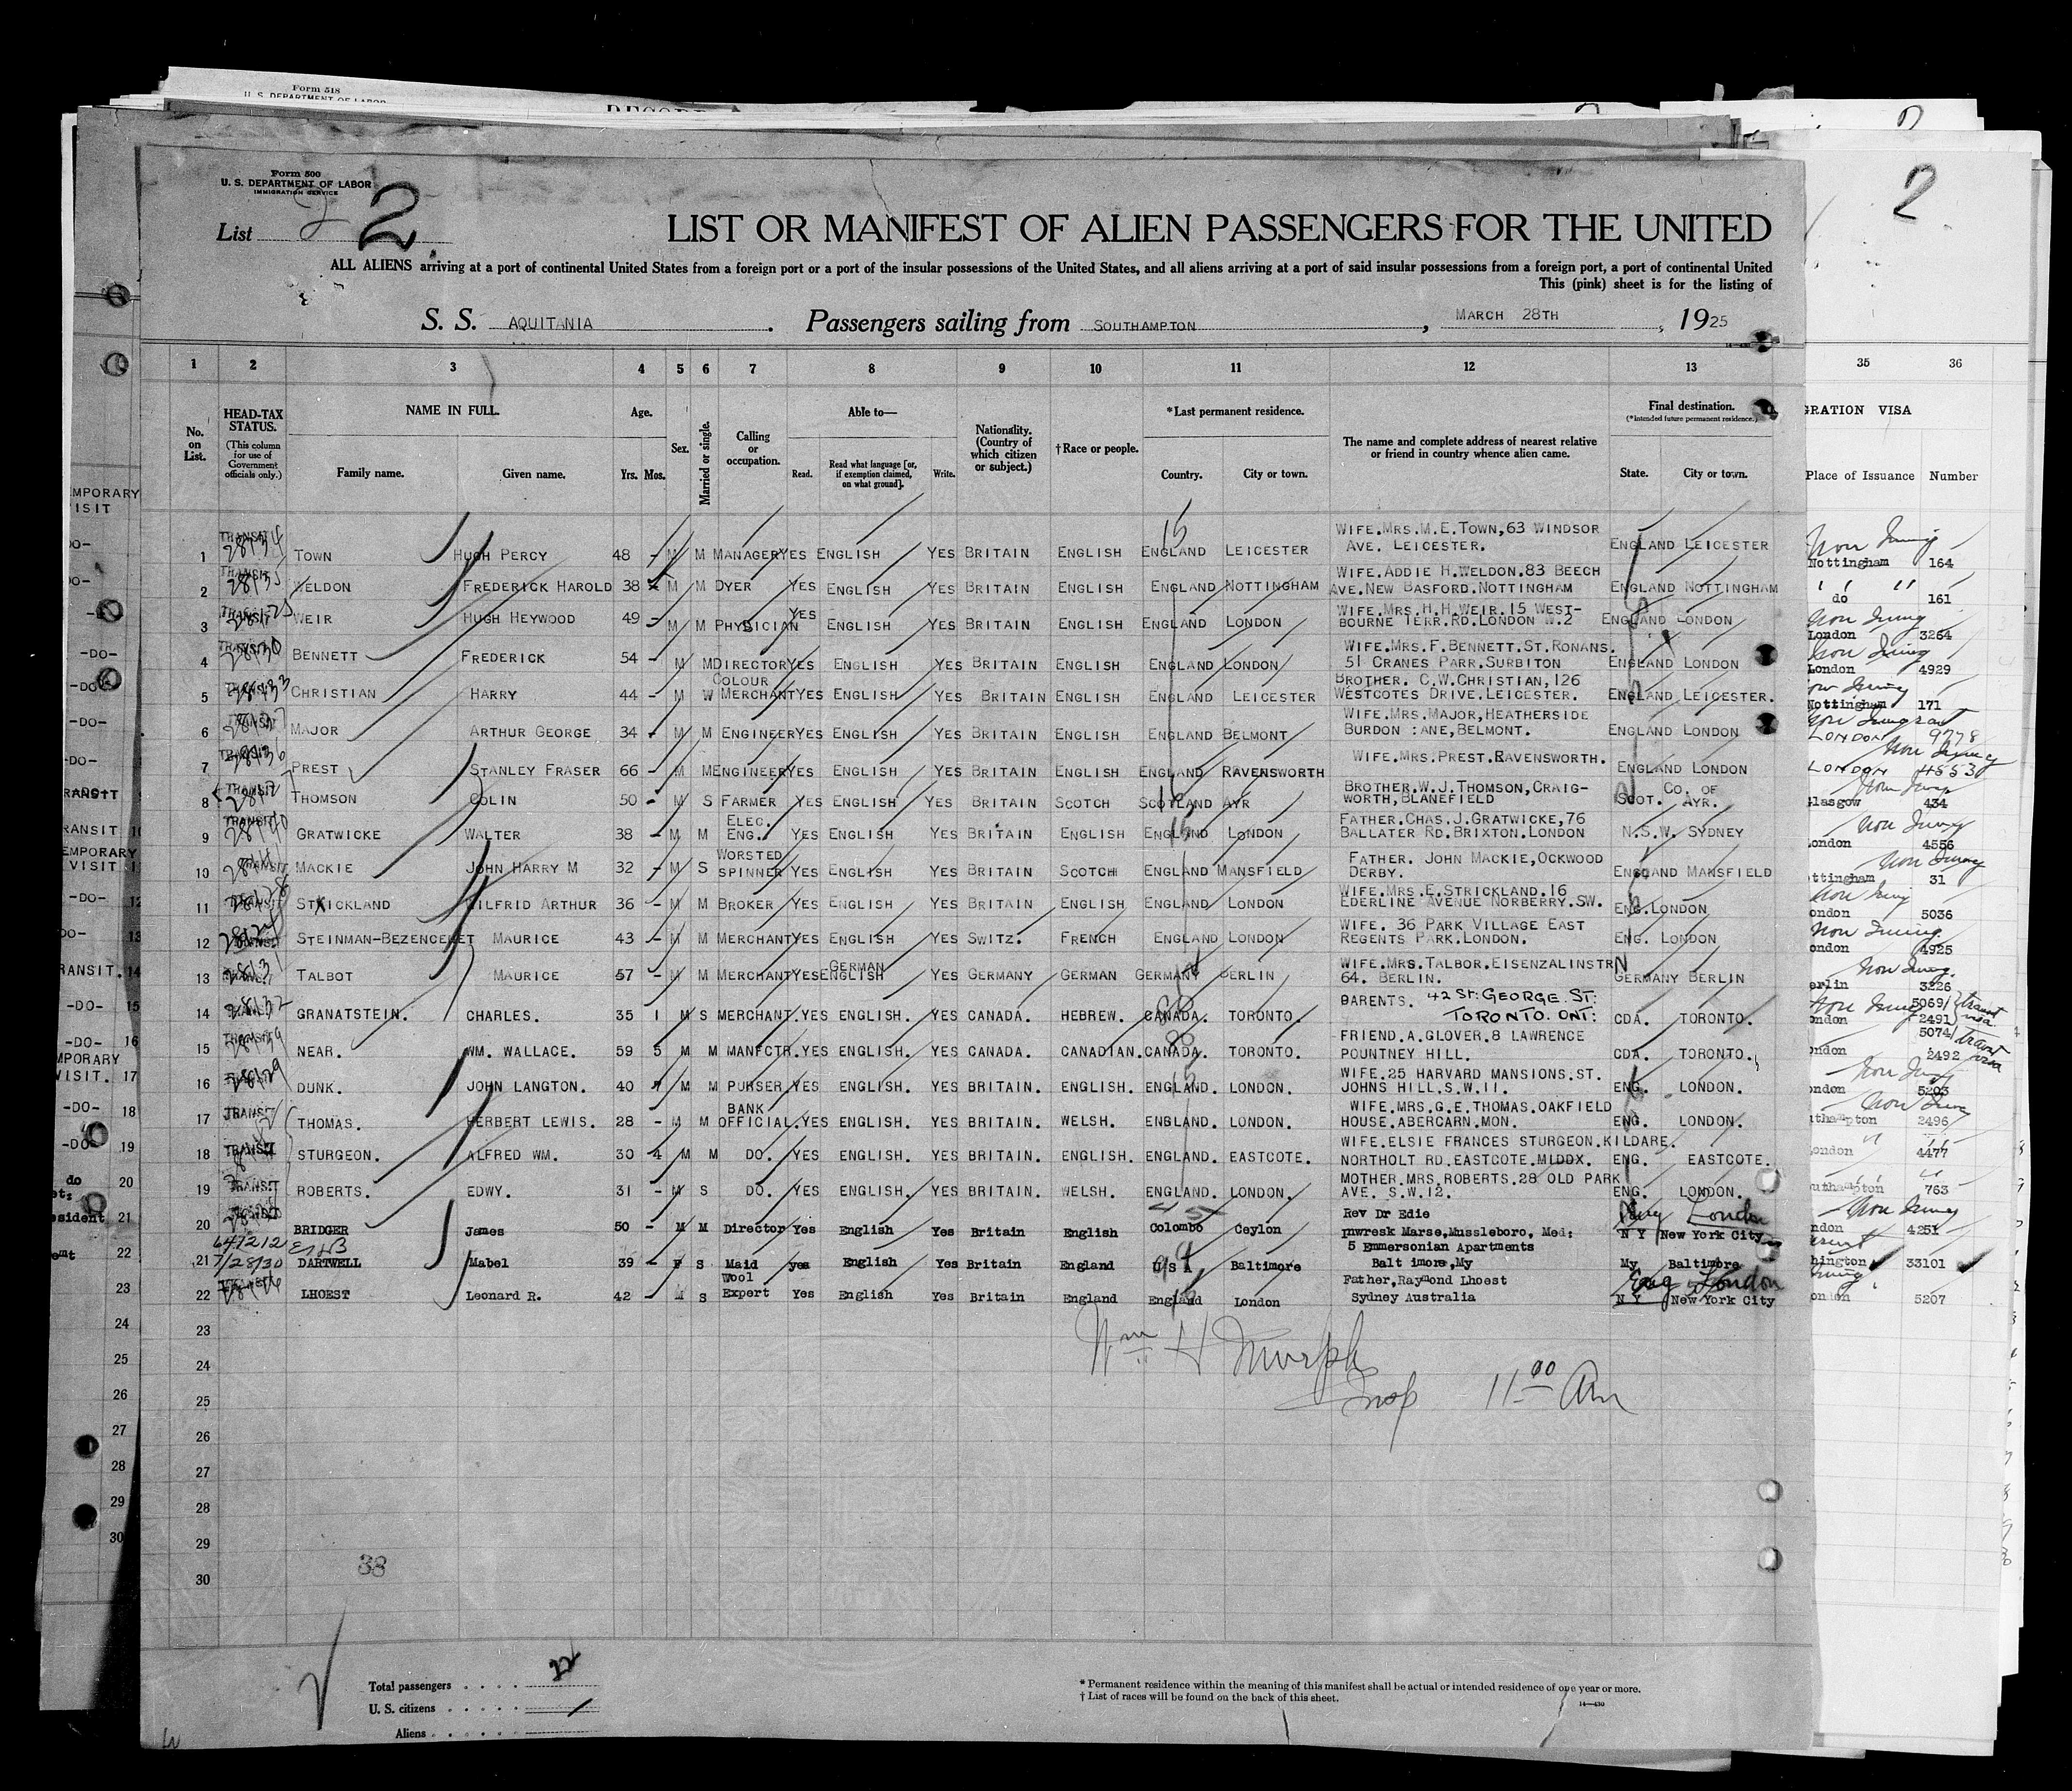 Form 518
U. S. DEPARTMENT OF LABOR
Form 500
U. S. DEPARTMENT OF LABOR
IMMIGRATION SERVICE
List 2 2
LIST OR MANIFEST OF ALIEN PASSENGERS FOR THE UNITED
ALL ALIENS arriving at a port of continental United States from a foreign port or a port of the insular possessions of the United States, and all aliens arriving at a port of said insular possessions from a foreign port, a port of continental United
This (pink) sheet is for the listing of
S. S. AQUITANIA. Passengers sailing from SOUTHAMPTON, MARCH 28TH, 1925
1 2 3 4 5 6 7 8 9 10 11 12 13 35 36
No. on List. HEAD-TAX STATUS. (This column for use of Government officials only.) NAME IN FULL. Family name. Given name. Age. Yrs. Mos. Sex. Married or single. Calling or occupation. Able to— Read. Read what language [or, if exemption claimed, on what ground]. Write. Nationality. (Country of which citizen or subject.) †Race or people. *Last permanent residence. Country. City or town. The name and complete address of nearest relative or friend in country whence alien came. Final destination. (*Intended future permanent residence.) State. City or town. GRATION VISA Place of Issuance Number
1 TRANSIT TOWN HUGH PERCY 48 - M M MANAGER YES ENGLISH YES BRITAIN ENGLISH ENGLAND LEICESTER WIFE.MRS.M.E.TOWN,63 WINDSOR AVE. LEICESTER. ENGLAND LEICESTER Nottingham 164
2 TRANSIT WELDON FREDERICK HAROLD 38 - M M DYER YES ENGLISH YES BRITAIN ENGLISH ENGLAND NOTTINGHAM WIFE.ADDIE H.WELDON.83 BEECH AVE.NEW BASFORD.NOTTINGHAM ENGLAND NOTTINGHAM do 161
3 TRANSIT WEIR HUGH HEYWOOD 49 - M M PHYSICIAN YES ENGLISH YES BRITAIN ENGLISH ENGLAND LONDON WIFE.MRS.H.H.WEIR.15 WEST-BOURNE TERR.RD.LONDON W.2 ENGLAND LONDON London 3264
4 TRANSIT BENNETT FREDERICK 54 - M M DIRECTOR YES ENGLISH YES BRITAIN ENGLISH ENGLAND LONDON WIFE.MRS.F.BENNETT.ST.RONANS. 51 CRANES PARK.SURBITON ENGLAND LONDON London 4929
5 TRANSIT CHRISTIAN HARRY 44 - M W COLOUR MERCHANT YES ENGLISH YES BRITAIN ENGLISH ENGLAND LEICESTER BROTHER. C.W.CHRISTIAN,126 WESTCOTES DRIVE.LEICESTER. ENGLAND LEICESTER. Nottingham 171
6 TRANSIT MAJOR ARTHUR GEORGE 34 - M M ENGINEER YES ENGLISH YES BRITAIN ENGLISH ENGLAND BELMONT WIFE.MRS.MAJOR,HEATHERSIDE BURDON :ANE,BELMONT. ENGLAND LONDON LONDON 9778
7 TRANSIT PREST STANLEY FRASER 66 - M M ENGINEER YES ENGLISH YES BRITAIN ENGLISH ENGLAND RAVENSWORTH WIFE.MRS.PREST.RAVENSWORTH. ENGLAND LONDON LONDON 4553
8 TRANSIT THOMSON COLIN 50 - M S FARMER YES ENGLISH YES BRITAIN SCOTCH SCOTLAND AYR BROTHER.W.J.THOMSON,CRAIG-WORTH,BLANEFIELD SCOT. CO. OF AYR. Glasgow 434
9 TRANSIT GRATWICKE WALTER 38 - M M ELEC. ENG. YES ENGLISH YES BRITAIN ENGLISH ENGLAND LONDON FATHER.CHAS.J.GRATWICKE,76 BALLATER RD.BRIXTON.LONDON N.S.W. SYDNEY London 4556
10 TRANSIT MACKIE JOHN HARRY M 32 - M S WORSTED SPINNER YES ENGLISH YES BRITAIN SCOTCH ENGLAND MANSFIELD FATHER. JOHN MACKIE,OCKWOOD DERBY. ENGLAND MANSFIELD ottingham 31
11 TRANSIT STRICKLAND WILFRID ARTHUR 36 - M M BROKER YES ENGLISH YES BRITAIN ENGLISH ENGLAND LONDON WIFE.MRS.E.STRICKLAND.16 EDERLINE AVENUE NORBERRY.SW. ENG.LONDON ondon 5036
12 TRANSIT STEINMAN-BEZENCENET MAURICE 43 - M M MERCHANT YES ENGLISH YES SWITZ. FRENCH ENGLAND LONDON WIFE. 36 PARK VILLAGE EAST REGENTS PARK.LONDON. ENG. LONDON ondon 4925
13 TRANSIT TALBOT MAURICE 57 - M M MERCHANT YES GERMAN ENGLISH YES GERMANY GERMAN GERMANY BERLIN WIFE.MRS.TALBOR.EISENZALINSTRN 64. BERLIN. GERMANY BERLIN erlin 3226
14 GRANATSTEIN. CHARLES. 35 1 M S MERCHANT. YES ENGLISH. YES CANADA. HEBREW. CANADA. TORONTO. PARENTS. 42 ST: GEORGE. ST: TORONTO. ONT: CDA. TORONTO. ondon 5069/2491 transit visa
15 TRANSIT NEAR. WM. WALLACE. 59 5 M M MANFCTR. YES ENGLISH. YES CANADA. CANADIAN. CANADA. TORONTO. FRIEND.A.GLOVER.8 LAWRENCE POUNTNEY HILL. CDA. TORONTO. ondon 5074/2492 transit visa
16 TRANSIT DUNK. JOHN LANGTON. 40 M M PURSER. YES ENGLISH. YES BRITAIN. ENGLISH. ENGLAND. LONDON. WIFE.25 HARVARD MANSIONS.ST. JOHNS HILL.S.W.11. ENG. LONDON. ondon 5203
17 TRANSIT THOMAS. HERBERT LEWIS. 28 - M M BANK OFFICIAL. YES ENGLISH. YES BRITAIN. WELSH. ENGLAND. LONDON. WIFE.MRS.G.E.THOMAS.OAKFIELD HOUSE.ABERCARN.MON. ENG. LONDON. uthampton 2496
18 TRANSIT STURGEON. ALFRED WM. 30 4 M M DO. YES ENGLISH. YES BRITAIN. ENGLISH. ENGLAND. EASTCOTE. WIFE.ELSIE FRANCES STURGEON.KILDARE. NORTHOLT RD.EASTCOTE.MIDDX. ENG. EASTCOTE. ondon 4477
19 TRANSIT ROBERTS. EDWY. 31 - M S DO. YES ENGLISH. YES BRITAIN. WELSH. ENGLAND. LONDON. MOTHER.MRS.ROBERTS.28 OLD PARK AVE. S.W.12. ENG. LONDON. uthampton 763
20 BRIDGER James 50 - M M Director Yes English Yes Britain English Colombo Ceylon Rev Dr Edie Inwresk Marse,Mussleboro, Med: N Y New York City Eng London ndon 4251
21 7/28/30 DARTWELL Mabel 39 - F S Maid yes English Yes Britain England U S A Baltimore 5 Emmersonian Apartments Balt imore,My My Baltimore hington 33101
22 TRANSIT LHOEST Leonard R. 42 - M S Wool Expert Yes English Yes Britain England England London Father,Raymond Lhoest Sydney Australia N Y New York City Eng London ondon 5207
23
Wm H Murphy
24
Insp 11 00 Am
25
26
27
28
29
30
38
Total passengers 22
U. S. citizens /
Aliens
* Permanent residence within the meaning of this manifest shall be actual or intended residence of one year or more.
† List of races will be found on the back of this sheet.
14—430